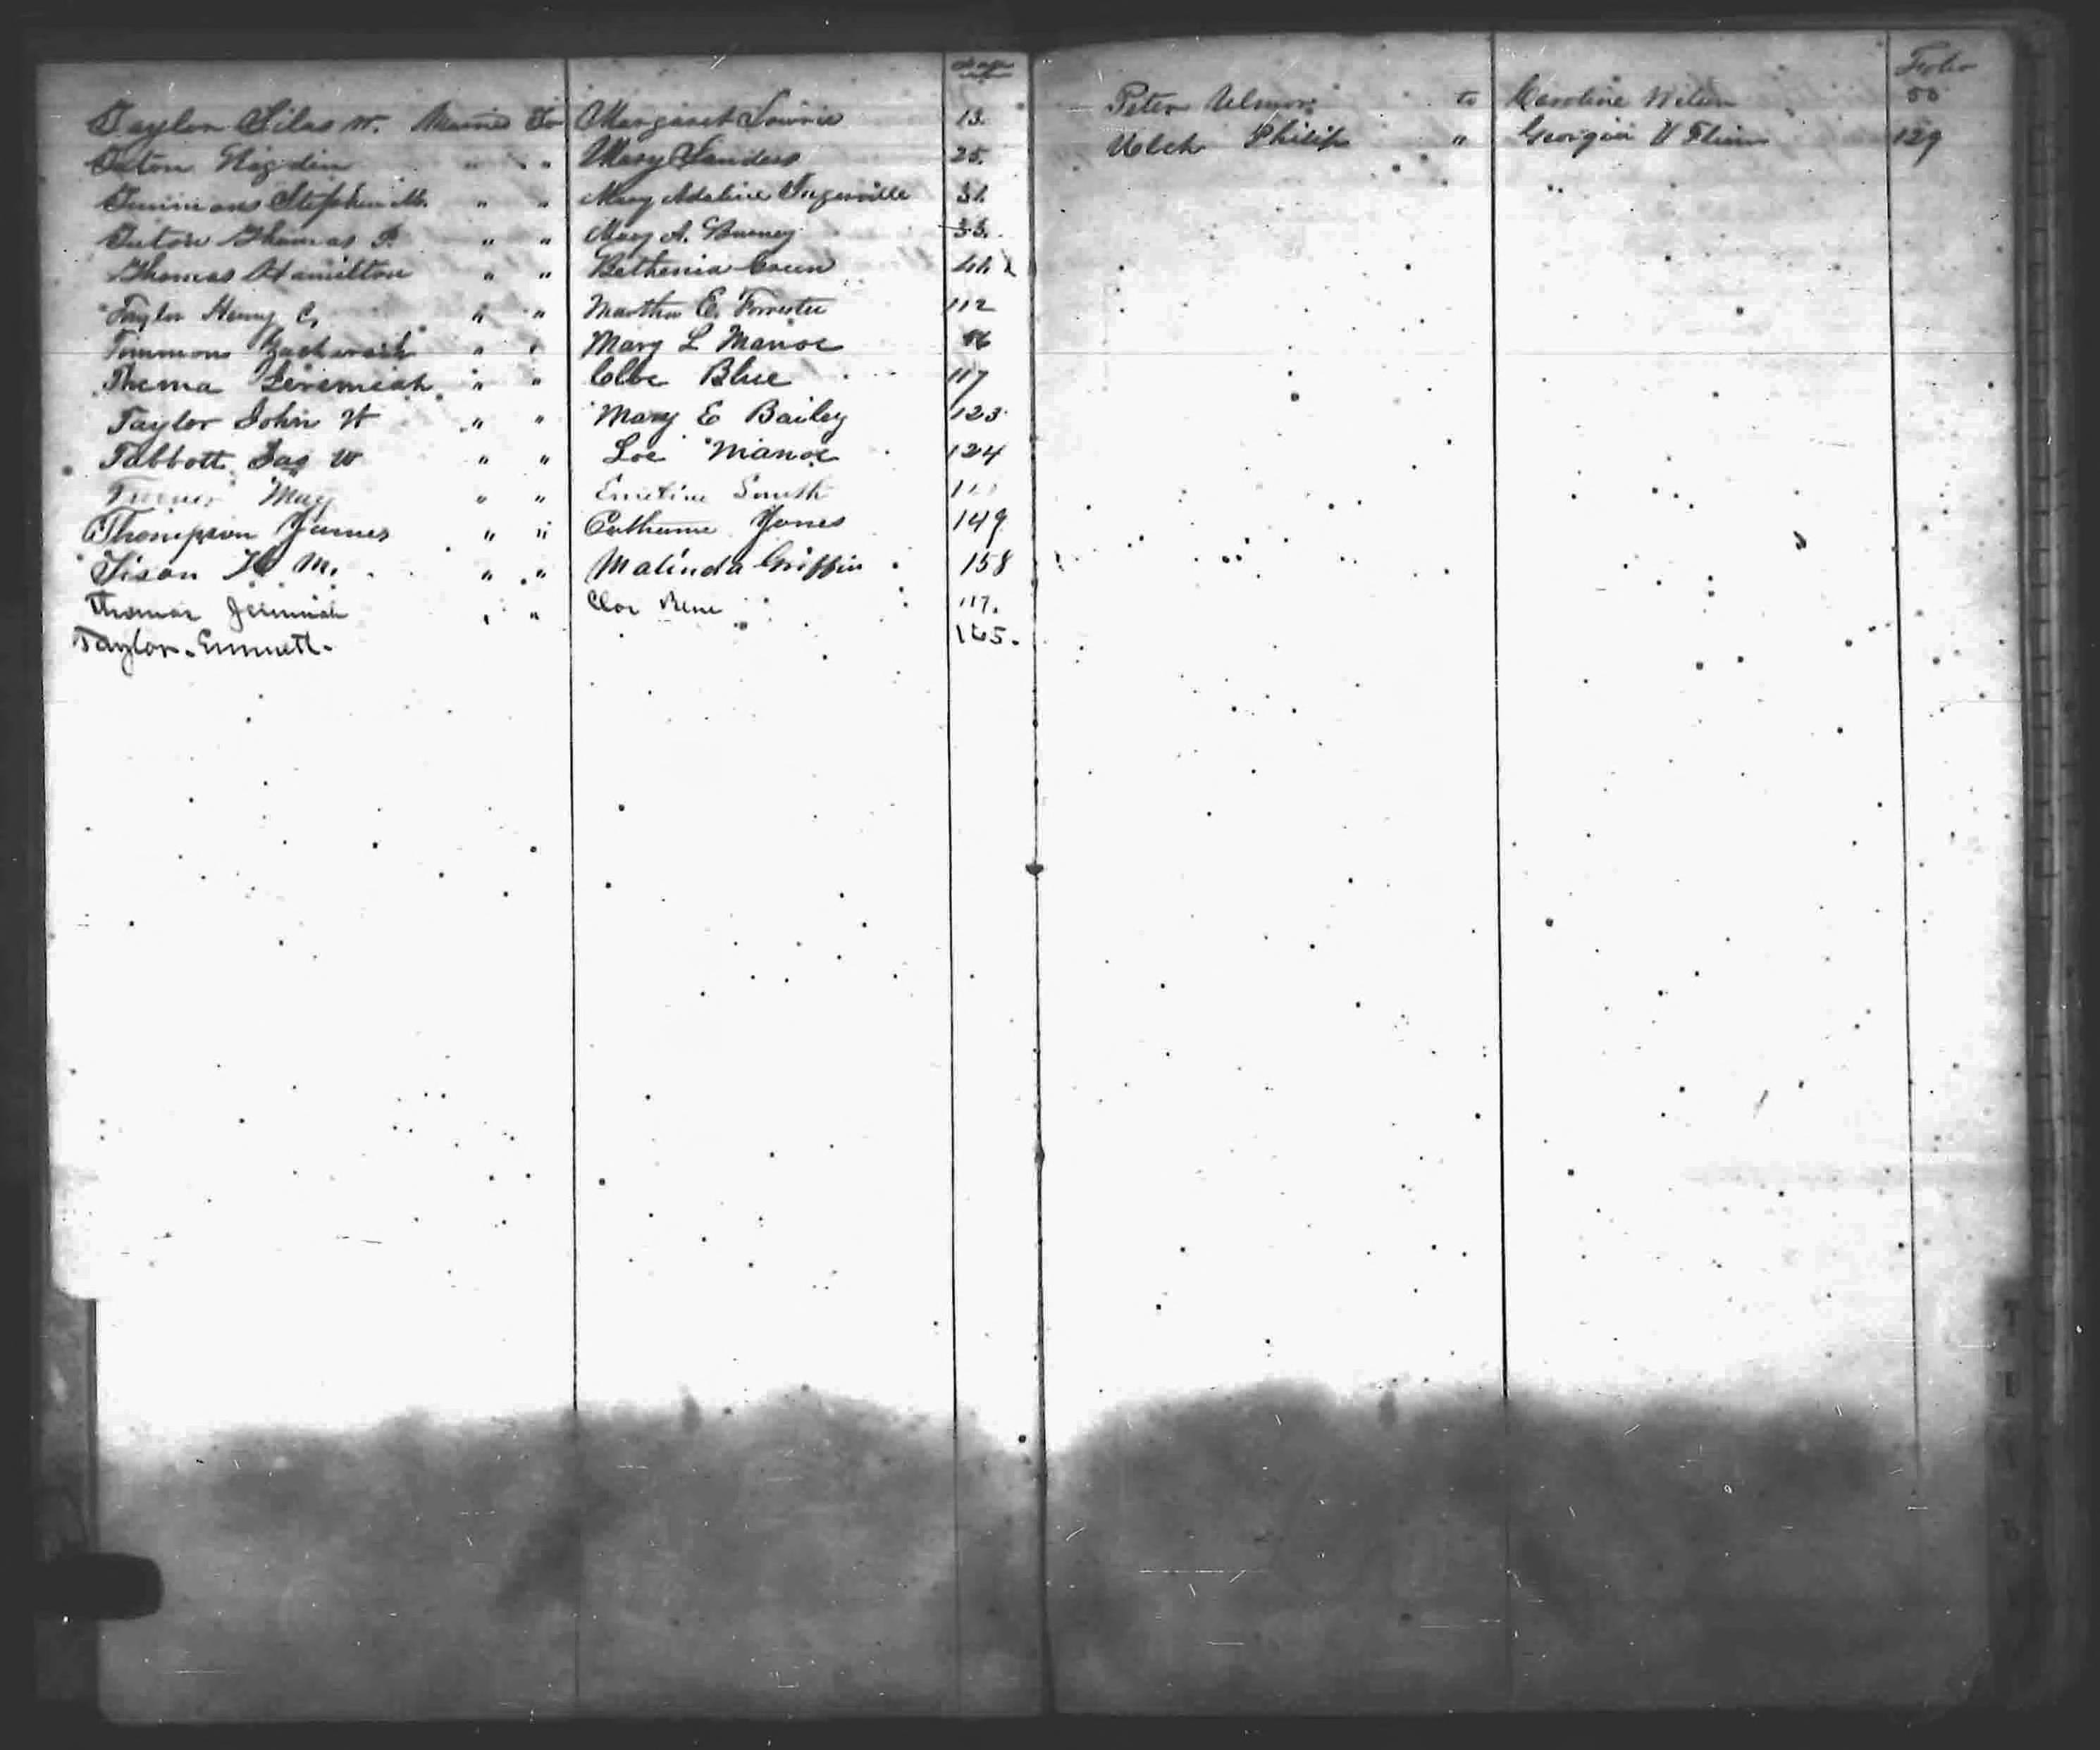 Page
Taylor Silas W. Married To Margaret Lowrie 13.
Teton Rigdin " " Mary Sanders 25.
Timmons Stephen M. " " Mary Adaline 31.
Teton Thomas P. " " Mary A. 33.
Thomas Hamilton " " Bethenia 44
Taylor Henry C. " " Martha E. Forrester 112
Timmons Zachariah " " Mary L Manoe
Thoma Jeremiah " " Cloe Blue 117
Taylor John W " " Mary E Bailey 123
Tabbott Jas W " " Loe Manoe 124
Turner May " " Emeline Smith
Thompson James " " Catharine Jones 149
Tison H M. " " Malinda Griffin 158
Thomas Jeremiah " " Cloe 117.
Taylor. Emmett. 165.
Folio
Peter Ulmer to Caroline 50
Ulch Philip " Georgia V 129
T
U